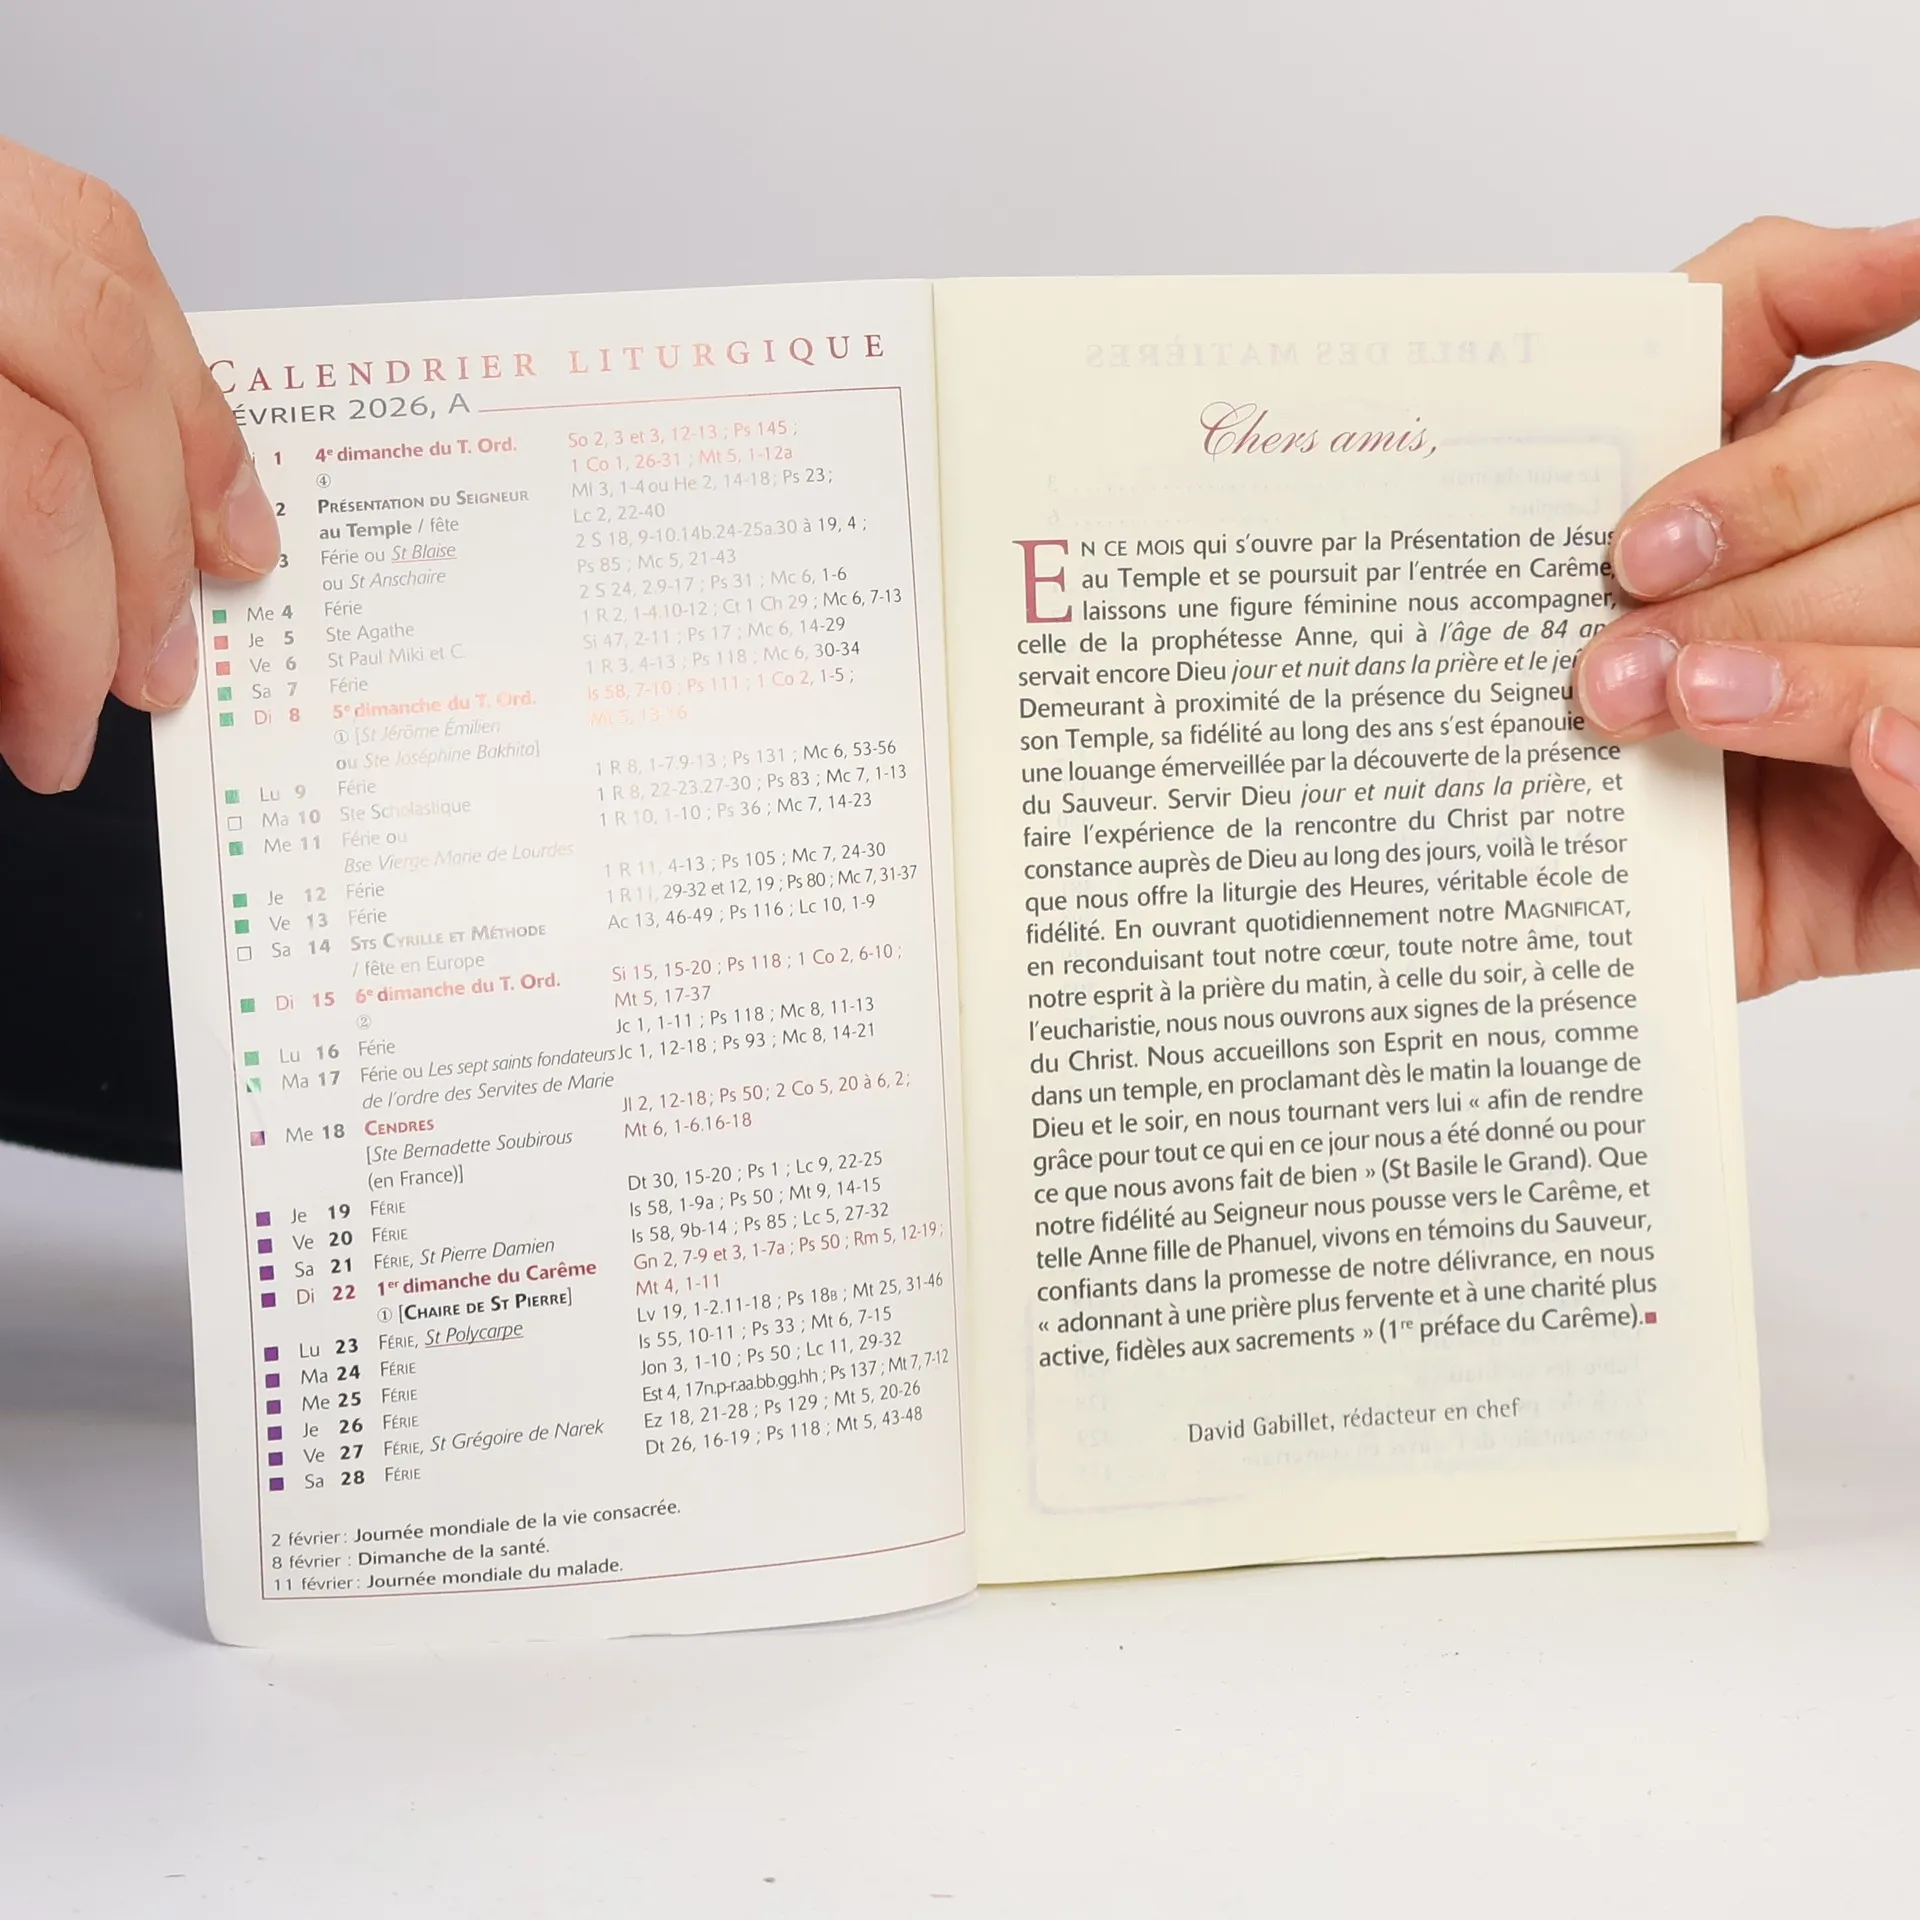 CALENDRIER LITURGIQUE
ÉVRIER 2026, A
1 4e dimanche du T. Ord. So 2, 3 et 3, 12-13 ; Ps 145 ;
④ 1 Co 1, 26-31 ; Mt 5, 1-12a
2 PRÉSENTATION DU SEIGNEUR Ml 3, 1-4 ou He 2, 14-18 ; Ps 23 ;
au Temple / fête Lc 2, 22-40
3 Férie ou St Blaise 2 S 18, 9-10.14b.24-25a.30 à 19, 4 ;
ou St Anschaire Ps 85 ; Mc 5, 21-43
Me 4 Férie 2 S 24, 2.9-17 ; Ps 31 ; Mc 6, 1-6
Je 5 Ste Agathe 1 R 2, 1-4.10-12 ; Ct 1 Ch 29 ; Mc 6, 7-13
Ve 6 St Paul Miki et C. Si 47, 2-11 ; Ps 17 ; Mc 6, 14-29
Sa 7 Férie 1 R 3, 4-13 ; Ps 118 ; Mc 6, 30-34
Di 8 5e dimanche du T. Ord. Is 58, 7-10 ; Ps 111 ; 1 Co 2, 1-5 ;
① [St Jérôme Émilien Mt 5, 13-16
ou Ste Joséphine Bakhita]
Lu 9 Férie 1 R 8, 1-7.9-13 ; Ps 131 ; Mc 6, 53-56
Ma 10 Ste Scholastique 1 R 8, 22-23.27-30 ; Ps 83 ; Mc 7, 1-13
Me 11 Férie ou 1 R 10, 1-10 ; Ps 36 ; Mc 7, 14-23
Bse Vierge Marie de Lourdes
Je 12 Férie 1 R 11, 4-13 ; Ps 105 ; Mc 7, 24-30
Ve 13 Férie 1 R 11, 29-32 et 12, 19 ; Ps 80 ; Mc 7, 31-37
Sa 14 STS CYRILLE ET MÉTHODE Ac 13, 46-49 ; Ps 116 ; Lc 10, 1-9
/ fête en Europe
Di 15 6e dimanche du T. Ord. Si 15, 15-20 ; Ps 118 ; 1 Co 2, 6-10 ;
② Mt 5, 17-37
Lu 16 Férie Jc 1, 1-11 ; Ps 118 ; Mc 8, 11-13
Ma 17 Férie ou Les sept saints fondateurs Jc 1, 12-18 ; Ps 93 ; Mc 8, 14-21
de l'ordre des Servites de Marie
Me 18 CENDRES Jl 2, 12-18 ; Ps 50 ; 2 Co 5, 20 à 6, 2 ;
[Ste Bernadette Soubirous Mt 6, 1-6.16-18
(en France)]
Je 19 FÉRIE Dt 30, 15-20 ; Ps 1 ; Lc 9, 22-25
Ve 20 FÉRIE Is 58, 1-9a ; Ps 50 ; Mt 9, 14-15
Sa 21 FÉRIE, St Pierre Damien Is 58, 9b-14 ; Ps 85 ; Lc 5, 27-32
Di 22 1er dimanche du Carême Gn 2, 7-9 et 3, 1-7a ; Ps 50 ; Rm 5, 12-19 ;
① [CHAIRE DE ST PIERRE] Mt 4, 1-11
Lu 23 FÉRIE, St Polycarpe Lv 19, 1-2.11-18 ; Ps 18B ; Mt 25, 31-46
Ma 24 FÉRIE Is 55, 10-11 ; Ps 33 ; Mt 6, 7-15
Me 25 FÉRIE Jon 3, 1-10 ; Ps 50 ; Lc 11, 29-32
Je 26 FÉRIE Est 4, 17n.p-r.aa.bb.gg.hh ; Ps 137 ; Mt 7, 7-12
Ve 27 FÉRIE, St Grégoire de Narek Ez 18, 21-28 ; Ps 129 ; Mt 5, 20-26
Sa 28 FÉRIE Dt 26, 16-19 ; Ps 118 ; Mt 5, 43-48
2 février : Journée mondiale de la vie consacrée.
8 février : Dimanche de la santé.
11 février : Journée mondiale du malade.
Chers amis,
EN CE MOIS qui s'ouvre par la Présentation de Jésus
au Temple et se poursuit par l'entrée en Carême,
laissons une figure féminine nous accompagner,
celle de la prophétesse Anne, qui à l'âge de 84 an
servait encore Dieu jour et nuit dans la prière et le jeû
Demeurant à proximité de la présence du Seigneu
son Temple, sa fidélité au long des ans s'est épanouie
une louange émerveillée par la découverte de la présence
du Sauveur. Servir Dieu jour et nuit dans la prière, et
faire l'expérience de la rencontre du Christ par notre
constance auprès de Dieu au long des jours, voilà le trésor
que nous offre la liturgie des Heures, véritable école de
fidélité. En ouvrant quotidiennement notre MAGNIFICAT,
en reconduisant tout notre cœur, toute notre âme, tout
notre esprit à la prière du matin, à celle du soir, à celle de
l'eucharistie, nous nous ouvrons aux signes de la présence
du Christ. Nous accueillons son Esprit en nous, comme
dans un temple, en proclamant dès le matin la louange de
Dieu et le soir, en nous tournant vers lui « afin de rendre
grâce pour tout ce qui en ce jour nous a été donné ou pour
ce que nous avons fait de bien » (St Basile le Grand). Que
notre fidélité au Seigneur nous pousse vers le Carême, et
telle Anne fille de Phanuel, vivons en témoins du Sauveur,
confiants dans la promesse de notre délivrance, en nous
« adonnant à une prière plus fervente et à une charité plus
active, fidèles aux sacrements » (1re préface du Carême).
David Gabillet, rédacteur en chef